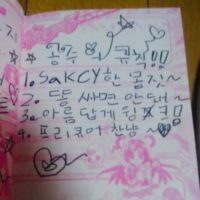 공주의 규칙!!
1. SaKCY한 몸짓~
2. 똥 싸면 안대~
3. 아름답게 윙크!!
4. 프리큐어 찬양~